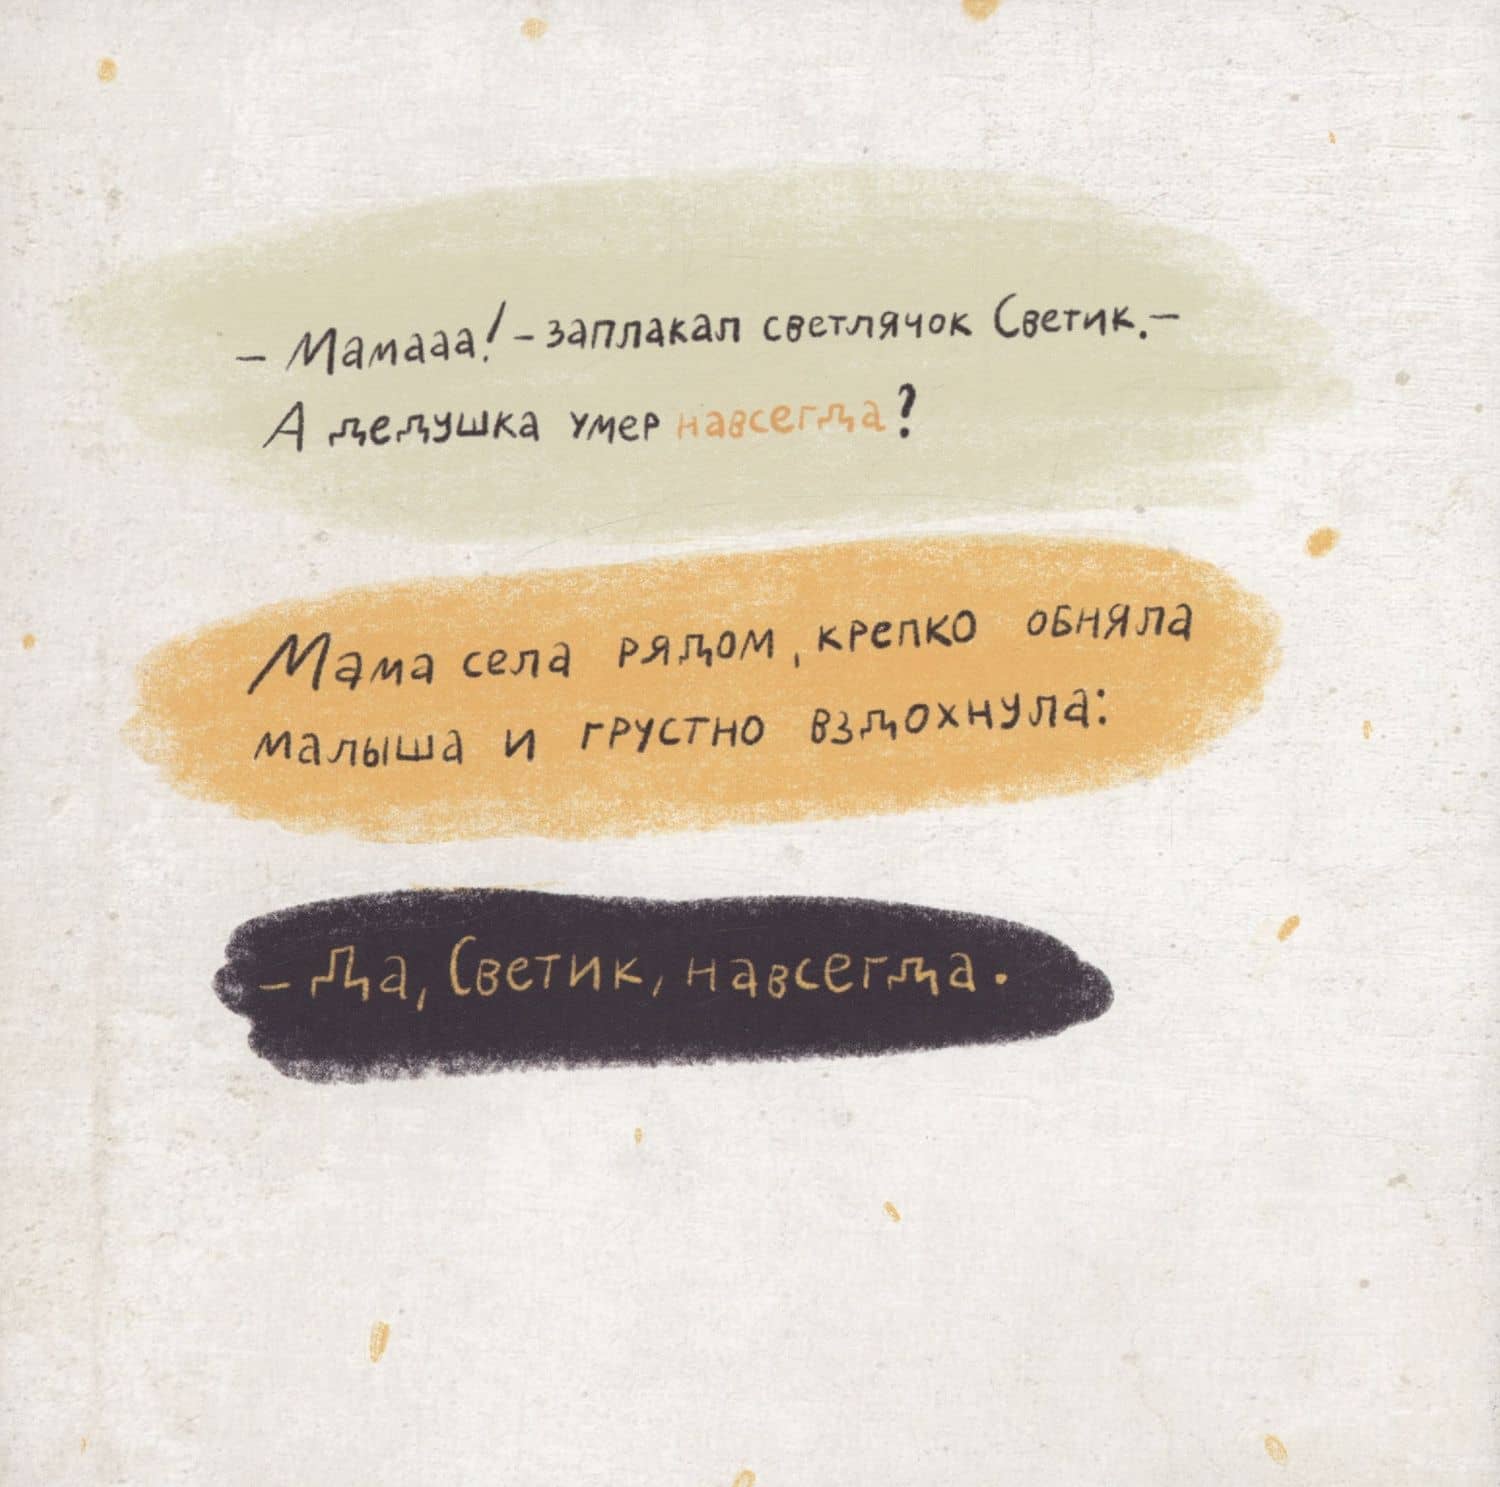 – Мамааа! – заплакал светлячок Светик. –
А дедушка умер навсегда?
Мама села рядом, крепко обняла
малыша и грустно вздохнула:
– Да, Светик, навсегда.